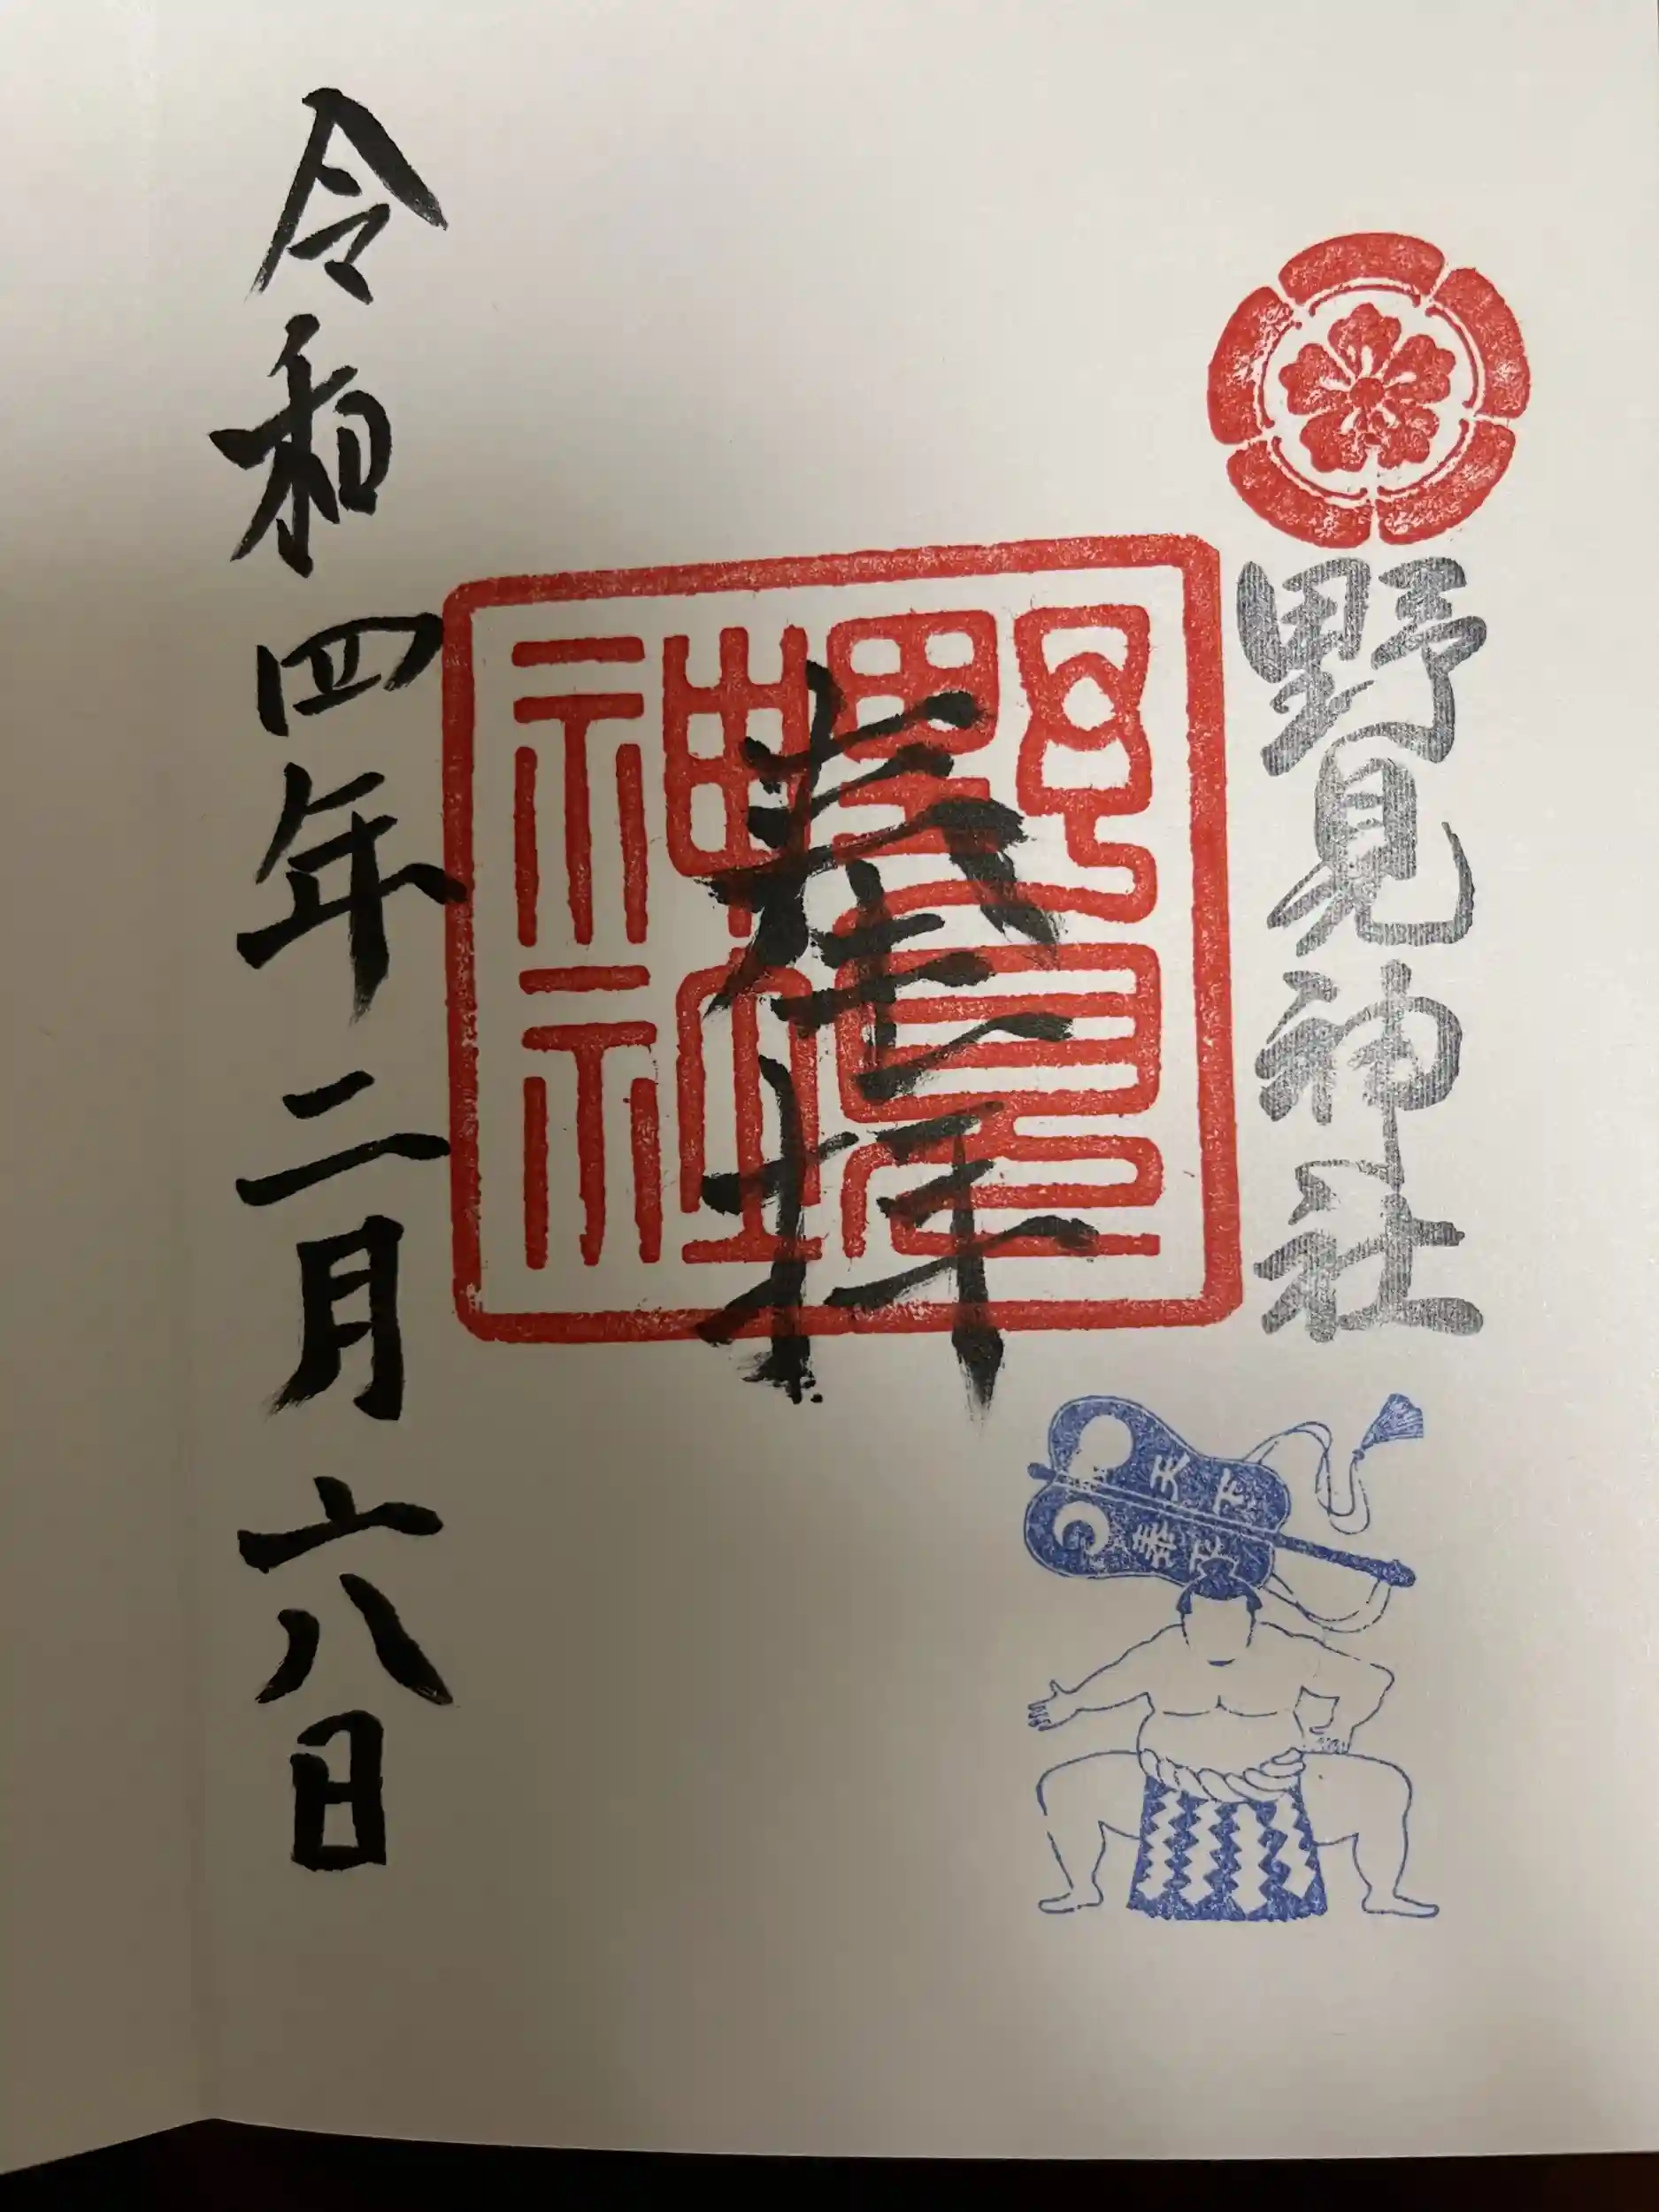 野見神社
天下
泰平
奉拝
野見
神社
令和四年二月六日